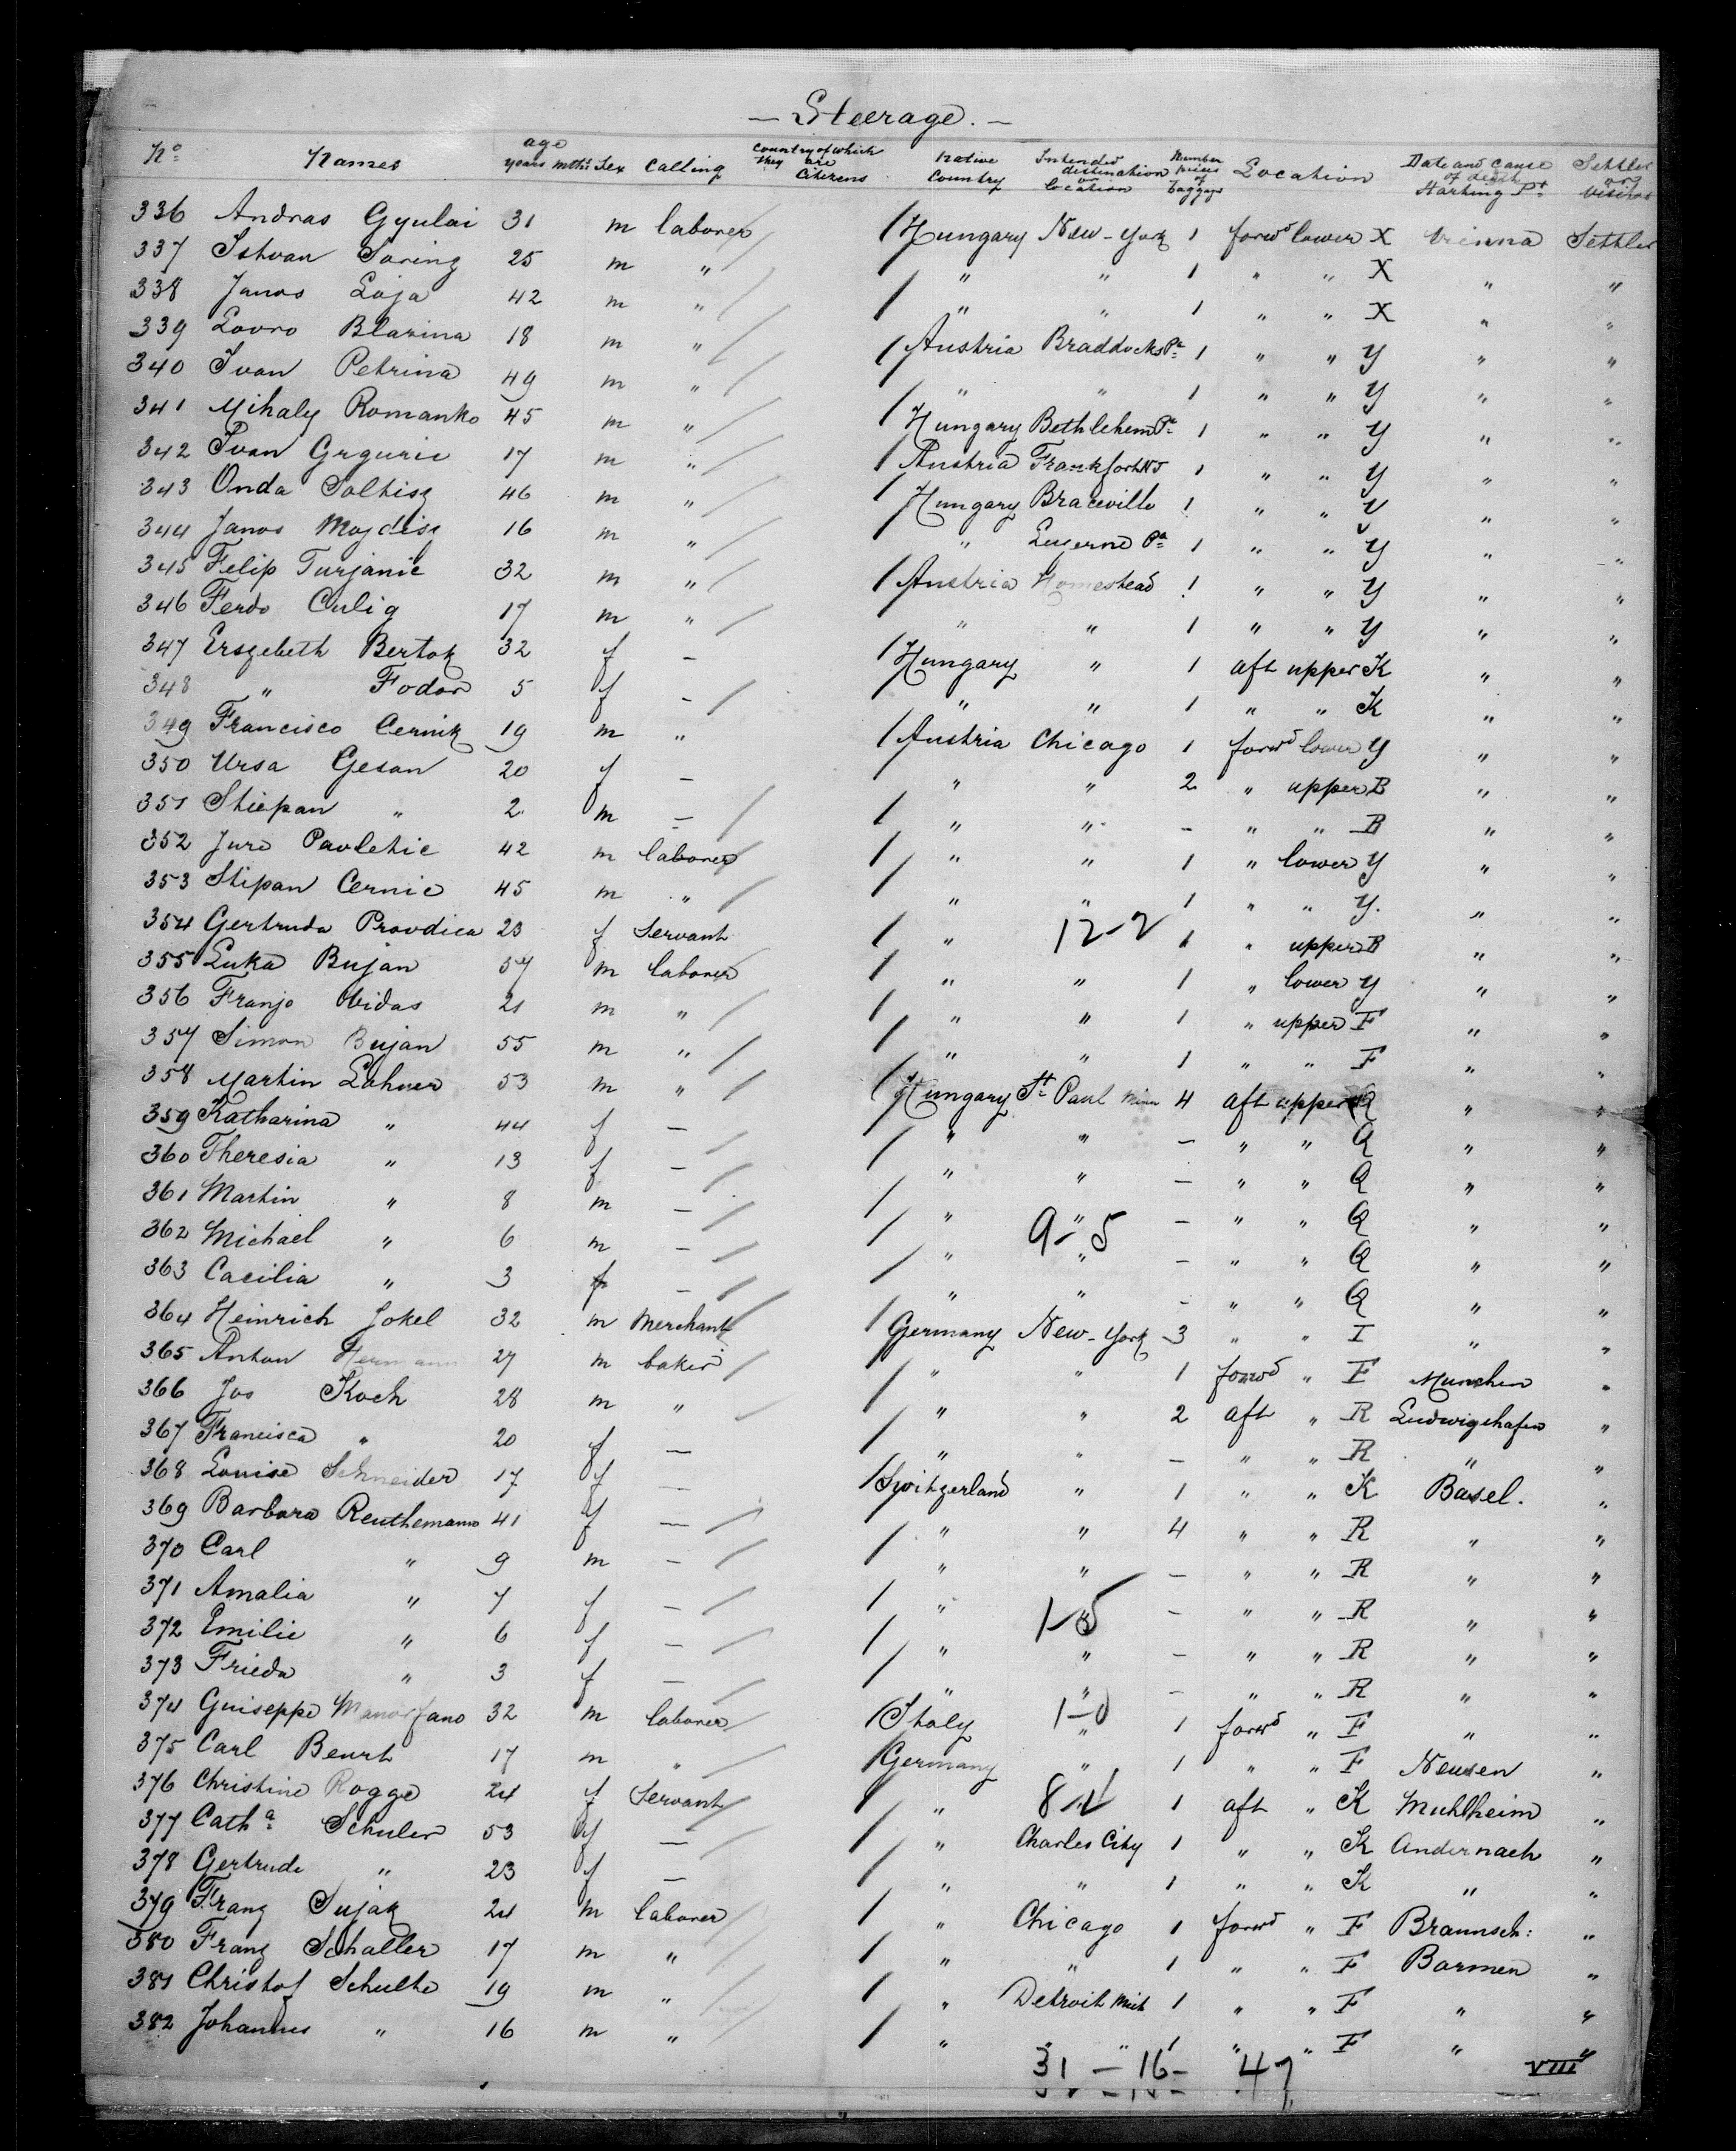 — Steerage. —
No Names age years mths Sex Calling Country of which they are Citizens Native Country Intended destination or location Number pieces of baggage Location Date and Cause of death Starting Pt Settler org Visitor
336 Andras Gyulai 31 m laborer / Hungary New-York 1 forwd lower X Vienna Settler
337 Istvan Soring 25 m " / " " 1 " " X " "
338 Janos Loja 42 m " / " " 1 " " X " "
339 Lovro Blazina 18 m " / Austria Braddocks Pa 1 " " Y " "
340 Ivan Petrina 49 m " / " " 1 " " Y " "
341 Mihaly Romanko 45 m " / Hungary Bethlehem Pa 1 " " Y " "
342 Ivan Grguric 17 m " / Austria Frankfort NJ 1 " " Y " "
343 Onda Soltisz 46 m " / Hungary Braceville 1 " " Y " "
344 Janos Mojdisz 16 m " " Luzerne Pa 1 " " Y " "
345 Felip Turjanic 32 m " / Austria Homestead 1 " " Y " "
346 Ferdo Culig 17 m " " " 1 " " Y " "
347 Erszebeth Bertok 32 f — / Hungary " 1 aft upper K " "
348 " Fodor 5 f — " " 1 " " K " "
349 Francisco Cernik 19 m " / Austria Chicago 1 forwd lower Y " "
350 Ursa Gesan 20 f — " " 2 " upper B " "
351 Stiepan " 2 m — / " " - " " B " "
352 Jure Pavletic 42 m laborer / " " 1 " lower Y " "
353 Stipan Cernic 45 m " / " " 1 " " Y. " "
354 Gertruda Provdica 23 f Servant / " 12-2 1 " upper B " "
355 Luka Bujan 57 m laborer / " " 1 " lower Y " "
356 Franjo Vidas 21 m " / " " 1 " upper F " "
357 Simon Bujan 55 m " / " " 1 " " F " "
358 Martin Lahner 53 m " / Hungary St Paul Minn 4 aft upper Q " "
359 Katharina " 44 f — / " " — " " Q " "
360 Theresia " 13 f — " " — " " Q " "
361 Martin " 8 m — / " " — " " Q " "
362 Michael " 6 m — / " 9-5 " — " " Q " "
363 Cacilia " 3 f — " " - " " Q " "
364 Heinrich Jokel 32 m Merchant / Germany New-York 3 " " I " "
365 Anton Hermann 27 m baker / " " 1 forwd " F Munchen "
366 Jos Koch 28 m " / " " 2 aft " R Ludwigshafen "
367 Francisca " 20 f — " " — " " R " "
368 Louise Schneider 17 f — / Switzerland " 1 " " K Basel. "
369 Barbara Reuthemann 41 f — / " " 4 " " R " "
370 Carl " 9 m — " " — " " R " "
371 Amalia " 7 f — / " 1-5 - " " R " "
372 Emilie " 6 f — / " " - " " R " "
373 Frieda " 3 f — / " " - " " R " "
374 Guiseppe Manorfano 32 m laborer / Italy 1-0 " 1 forwd " F " "
375 Carl 17 m " / Germany " 1 " " F "
376 Christine Rogge 24 f Servant / " 8-1 1 aft " K Muhlheim "
377 Catha Schuler 53 f — / " Charles City 1 " " K Andernach "
378 Gertrude " 23 f — / " " 1 " " K " "
379 Franz Sujak 24 m laborer / " Chicago 1 forwd " F Braunsch: "
380 Franz Schaller 17 m " / " " 1 " " F Barmen "
381 Christof Schulte 19 m " / " Detroit Mich 1 " " F " "
382 Johannes " 16 m " / " " 1 " " F " "
31 — 16 — 47
VIII